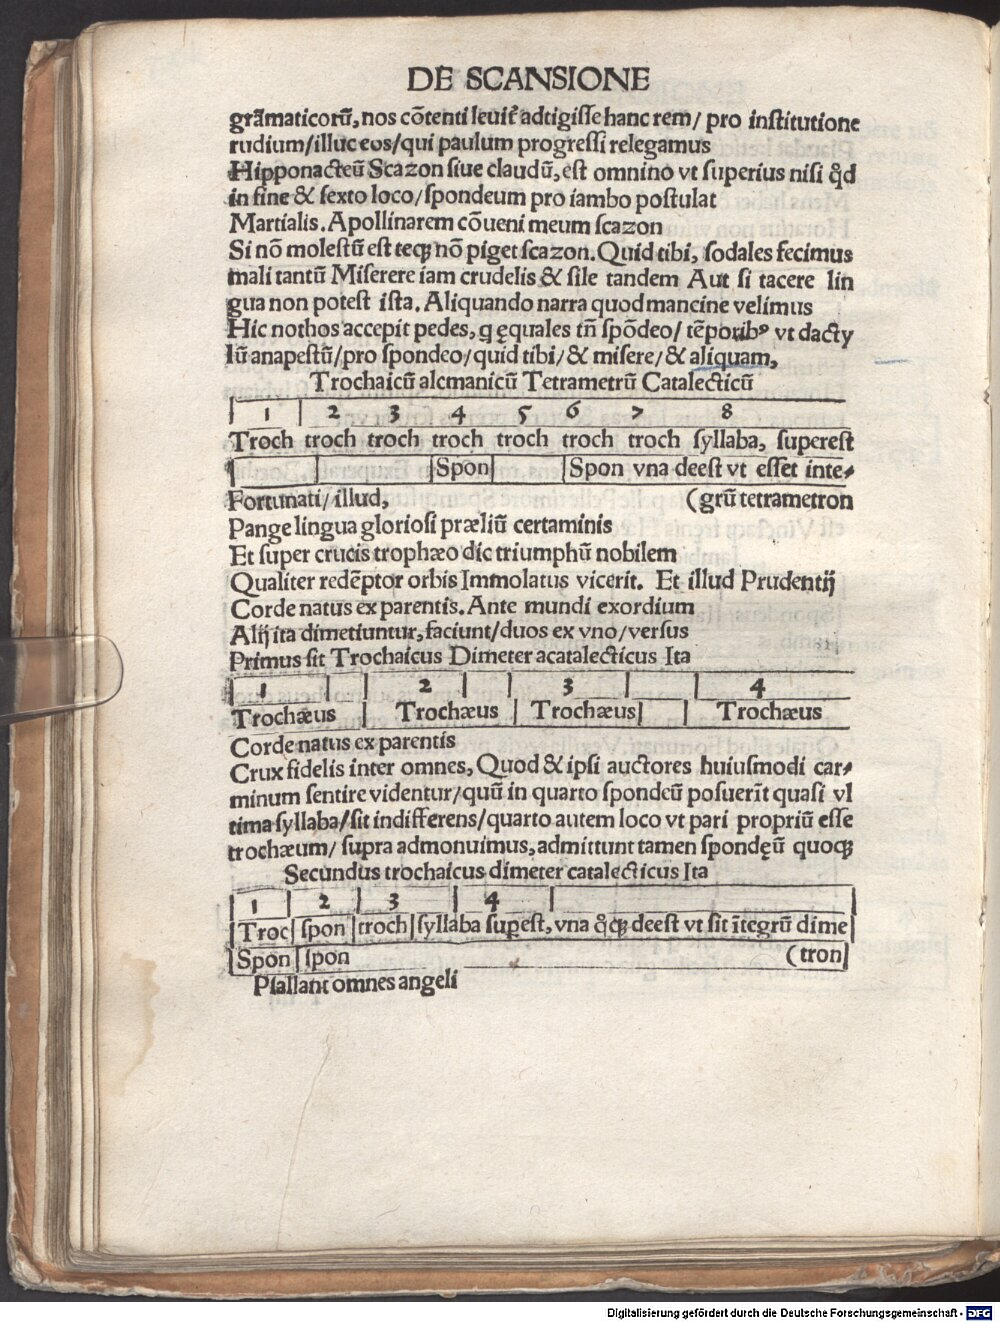 DE SCANSIONE
grãmaticorũ, nos cõtenti leuit̃ adtigisse hanc rem/ pro institutione
rudium/illuc eos/qui paulum progressi relegamus
Hipponacteũ Scazon siue claudũ, est omnino vt superius nisi qd̓
in fine & sexto loco/spondeum pro iambo postulat
Martialis. Apollinarem cõueni meum scazon
Si nõ molestũ est teqꝫ nõ piget scazon. Quid tibi, sodales fecimus
mali tantũ Miserere iam crudelis & sile tandem Aut si tacere lin
gua non potest ista. Aliquando narra quod mancine velimus
Hic nothos accepit pedes, q̨ ęquales tñ spõdeo/ tẽporibꝰ vt dacty
lũ anapestũ/pro spondeo/quid tibi/& misere/& aliquam,
Trochaicũ alcmanicũ Tetrametrũ Catalecticũ
1 2 3 4 5 6 7 8
Troch troch troch troch troch troch troch syllaba, superest
Spon Spon vna deest vt esset inte-
Fortunati/illud, (grũ tetrametron
Pange lingua gloriosi præliũ certaminis
Et super crucis trophæo dic triumphũ nobilem
Qualiter redẽptor orbis Immolatus vicerit. Et illud Prudentij
Corde natus ex parentis. Ante mundi exordium
Alij ita dimetiuntur, faciunt/duos ex vno/versus
Primus sit Trochaicus Dimeter acatalecticus Ita
1 2 3 4
Trochæus Trochæus Trochæus Trochæus
Corde natus ex parentis
Crux fidelis inter omnes, Quod & ipsi auctores huiusmodi car-
minum sentire videntur/quũ in quarto spondeũ posuerĩt quasi vl
tima syllaba/sit indifferens/quarto autem loco vt pari propriũ esse
trochæum/ supra admonuimus, admittunt tamen spondęũ quoqꝫ
Secundus trochaicus dimeter catalecticus Ita
1 2 3 4
Troc spon troch syllaba suꝑest, vna qq̓ꝫ deest vt sit ĩtegrũ dime
Spon spon (tron
Psallant omnes angeli
Digitalisierung gefördert durch die Deutsche Forschungsgemeinschaft - DFG